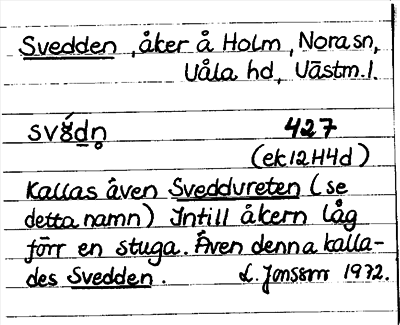 Svedden, åker å Holm, Nora sn,
Våla hd, Västm. l.
427
(ek 12H4d)
Kallas även Sveddvreten (se
detta namn) Intill åkern låg
förr en stuga. Även denna kalla-
des Svedden. L. Jonsson 1932.